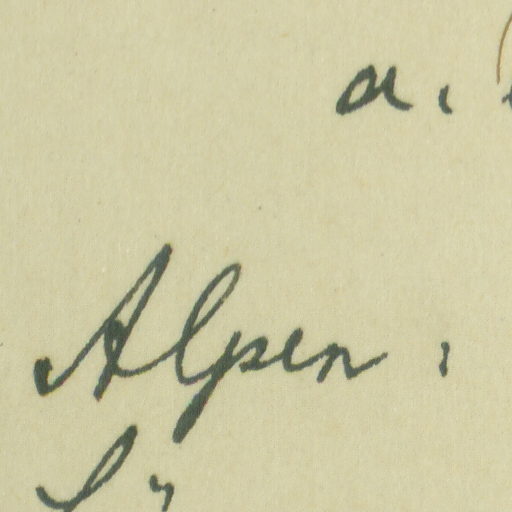 a.
Alpen: